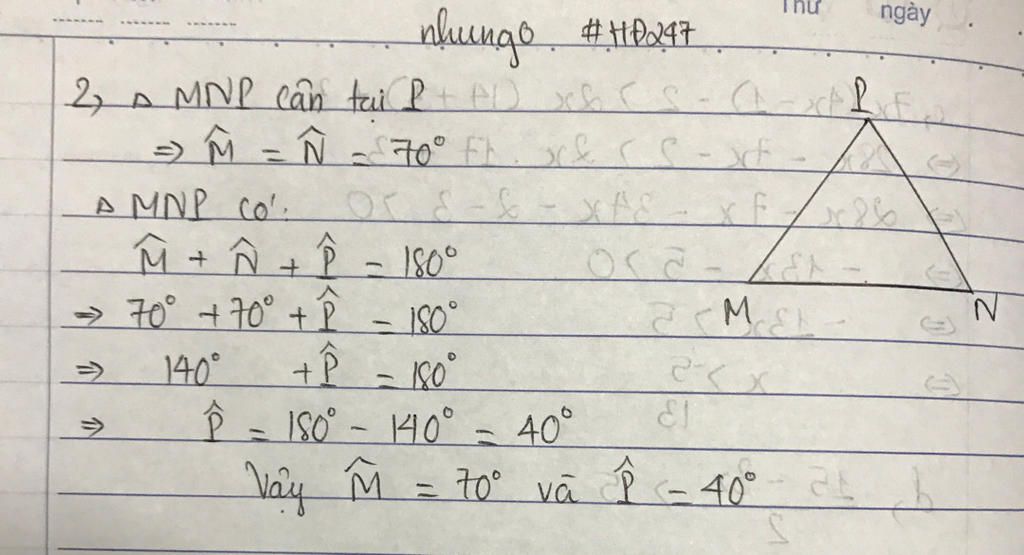 Thứ ngày
nhungo #HĐ247
2, △ MNP cân tại P
⇒ M̂ = N̂ = 70°
△ MNP có:
M̂ + N̂ + P̂ = 180°
⇒ 70° + 70° + P̂ = 180°
⇒ 140° + P̂ = 180°
⇒ P̂ = 180° - 140° = 40°
Vậy M̂ = 70° và P̂ = 40°
P
M
N